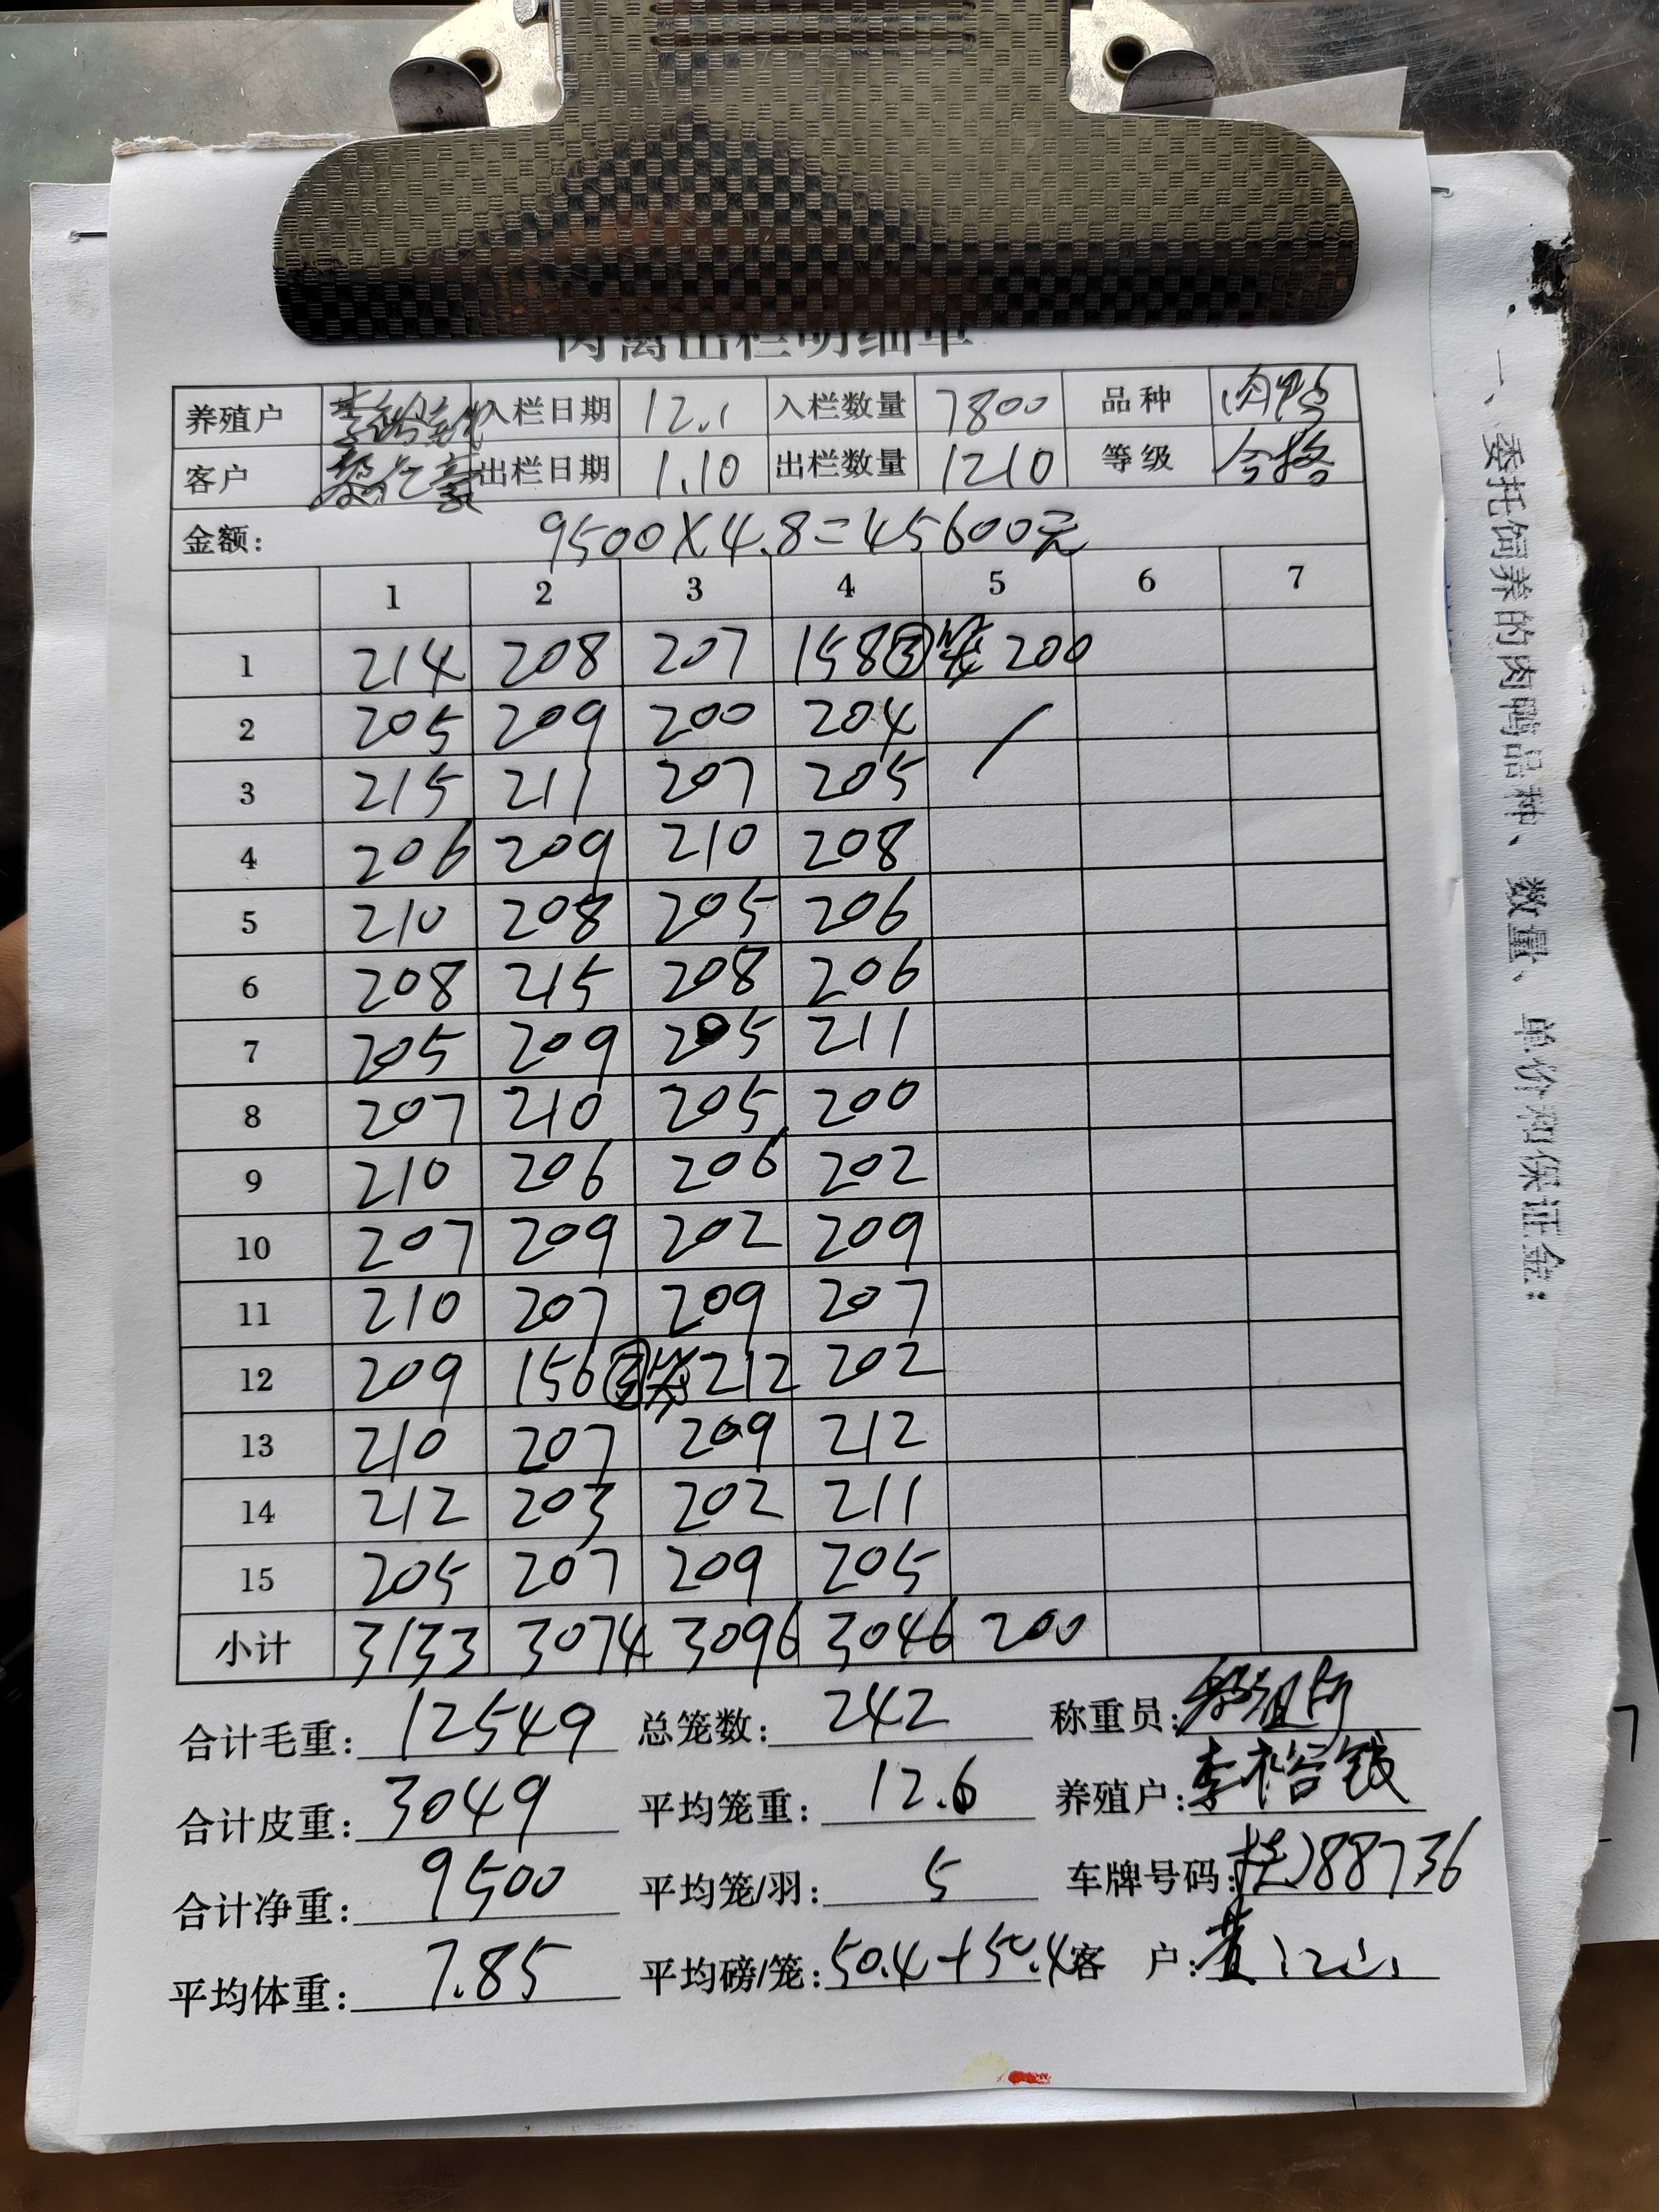 肉禽出栏明细单
养殖户 入栏日期 12.1 入栏数量 7800 品种 肉鸭
客户 出栏日期 1.10 出栏数量 1210 等级 合格
金额: 9500×4.8=45600元
1 2 3 4 5 6 7
1 214 208 207 158③笼 200
2 205 209 200 204 /
3 215 211 207 205
4 206 209 210 208
5 210 208 205 206
6 208 215 208 206
7 205 209 205 211
8 207 210 205 200
9 210 206 206 202
10 207 209 202 209
11 210 207 209 207
12 209 156③笼 212 202
13 210 207 209 212
14 212 203 202 211
15 205 207 209 205
小计 3133 3074 3096 3046 200
合计毛重: 12549 总笼数: 242 称重员:
合计皮重: 3049 平均笼重: 12.6 养殖户: 李裕钱
合计净重: 9500 平均笼/羽: 5 车牌号码: 桂J88736
平均体重: 7.85 平均磅/笼: 50.4+50.4 客 户: 黄江山
一、委托饲养的肉鸭品种、数量、单价和保证金: